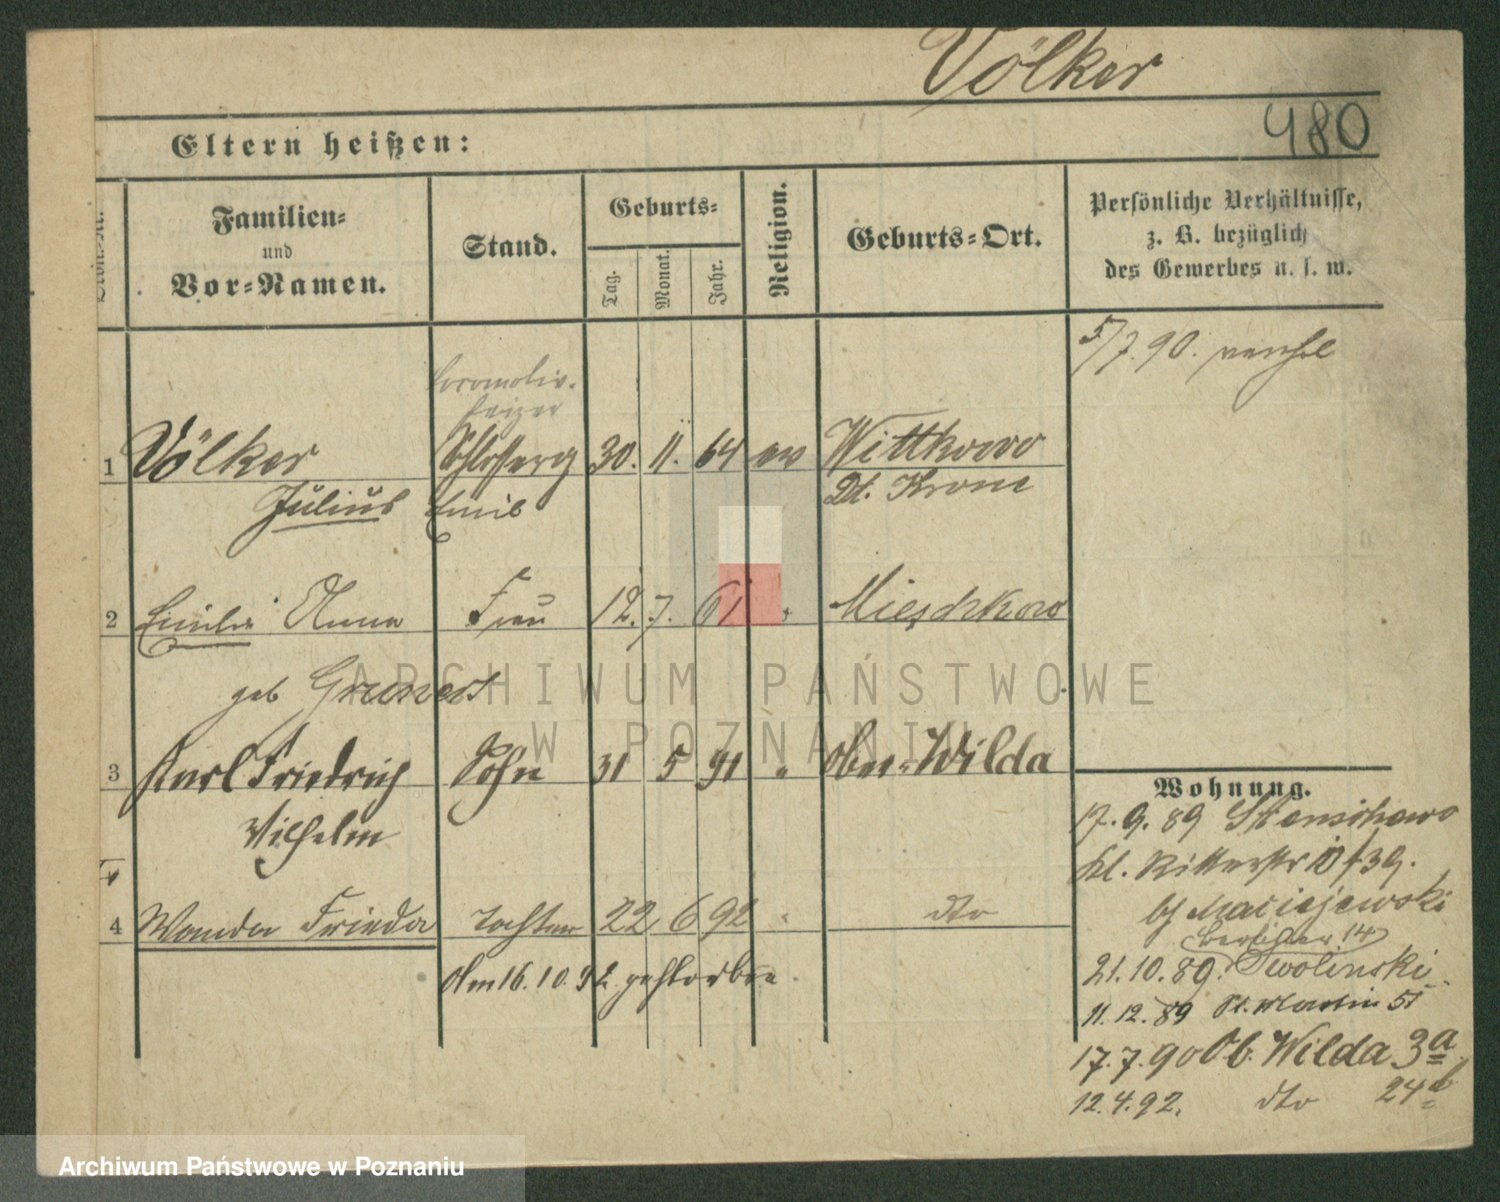 Völker
480
Eltern heißen:
Familien=
und
Vor=Namen.
Stand.
Geburts=
Tag.
Monat.
Jahr.
Religion.
Geburts=Ort.
Persönliche Verhältnisse,
z. B. bezüglich
des Gewerbes u. s. w.
5/7.90.
Locomotiv-
heizer
1 Völker 30. 11. 64 ev Wittkowo
Julius Emil Dt. Krone
2 Emilie Anna Frau 12. 7. 61 " Mieschkow
geb Grunert
3 Karl Friedrich Sohn 31 5 91 " Ober-Wilda
Wilhelm
4 Wanda Frieda Tochter 22 6 92 " dto
Am 16.10.92 gestorben.
Wohnung.
17.9.89
Kl. Ritterstr 39.
bf Maciejewski
Berliner 14
21.10.89. Swolinski
11.12.89 St. Martin 51
17.7.90 Ob. Wilda 3a
12.4.92. dto 24b
ARCHIWUM PAŃSTWOWE
W POZNANIU
Archiwum Państwowe w Poznaniu